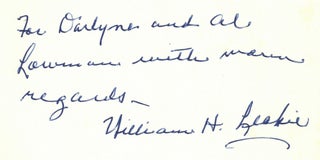 For Darlyne and Al
Lowman with warm
regards—
William H. Leckie